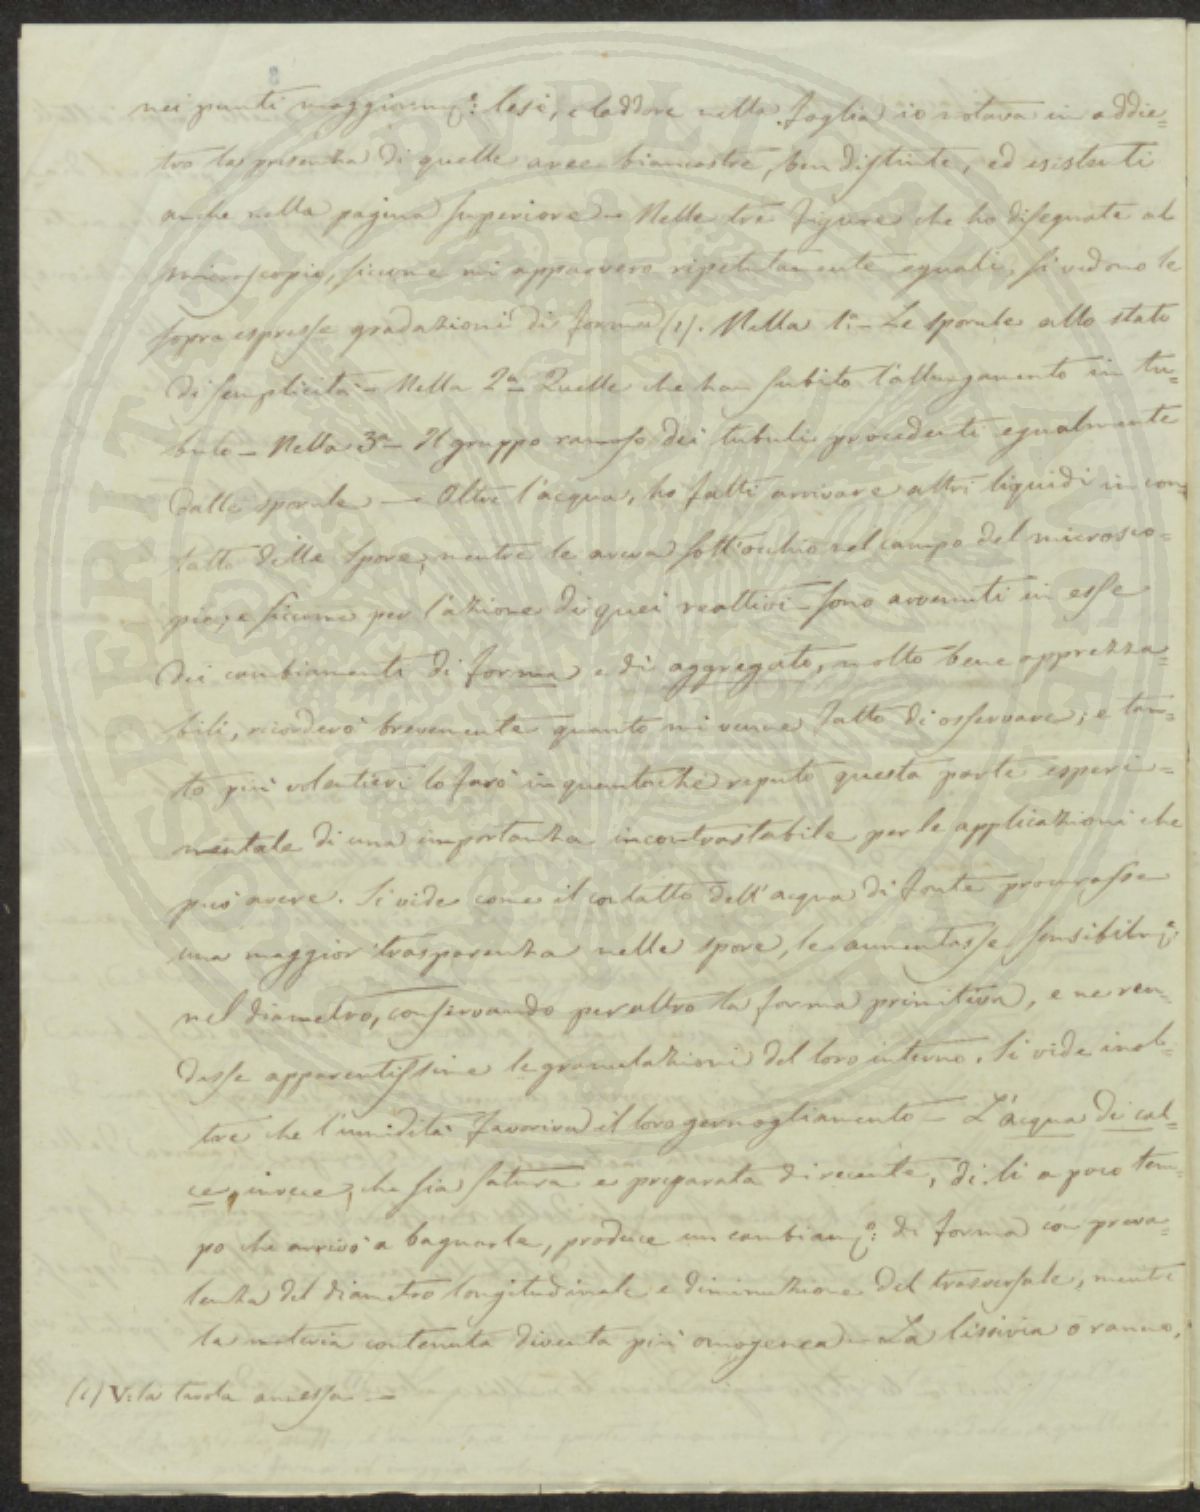 nei punti maggiorm.e: lesi, e laddove nella foglia io notava in addie=
tro la presenza di quelle aree biancastre, ben distinte, ed esistenti
anche nella pagina superiore – Nelle tre figure che ho disegnate al
microscopio, siccome mi apparvero ripetutamente eguali, si vedono le
sopra espresse gradazioni di forma (1). Nella 1.a – Le sporule allo stato
di semplicità – Nella 2a Quelle che han subito l'allungamento in tu=
bulo – Nella 3a – Il gruppo ramoso dei tubuli procedenti egualmente
dalle sporule – Oltre l'acqua, ho fatti arrivare altri liquidi in con=
tatto delle spore, mentre le aveva sott'occhio nel campo del microsco=
pio, e siccome per l'azione di quei reattivi sono avvenuti in esse
dei cambiamenti di forma e di aggregato, molto bene apprezza=
bili, ricorderò brevemente quanto mi venne fatto di osservare; e tan=
to più volentieri lo farò in quantochè reputo questa parte speri=
mentale di una importanza incontrastabile per le applicazioni che
può avere. Si vide come il contatto dell'acqua di fonte procurasse
una maggior trasparenza nelle spore, le aumentasse sensibilm.e
nel diametro, conservando per altro la forma primitiva, e ne ren=
desse apparentissime le granulazioni del loro interno. Si vide inol=
tre che l'umidità favoriva il loro germogliamento – L'acqua di cal=
ce, invece, che sia satura e preparata di recente, di lì a poco tem=
po che arrivò a bagnarle, produce un cambiam.o: di forma con preva=
lenza del diametro longitudinale e diminuzione del trasversale, mentre
la materia contenuta diventa più omogenea – La lissivia o ranno,
(1) V. la tavola annessa –
SOSPERITAS PUBLICA